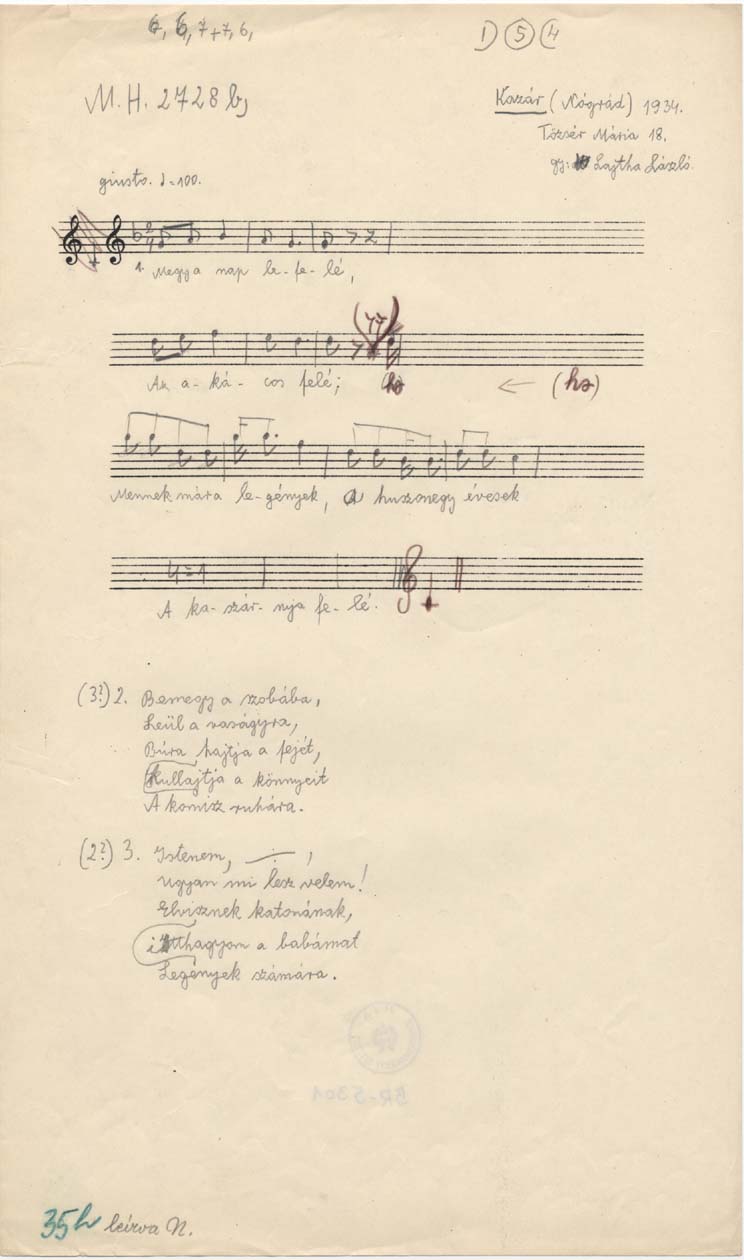 6, 6, 7+7, 6,
1) (5) (4
M. H. 2728 b,
Kazár (Nógrád) 1934.
Tőzsér Mária 18.
gy: Lajtha László.
giusto. ♩=100.
1. Megy a nap le-fe-lé,
Az a-ká-cos felé;
← (hz)
Mennek mára le-gények, a huszonegy évesek
4=1
A ka-szár-nyja fe-lé.
(3?) 2. Bemegy a szobába,
Leül a vaságyra,
Búra hajtja a fejét,
Hullajtja a könnyeit
A komisz ruhára.
(2?) 3. Istenem, —·— ,
Ugyan mi lesz velem!
Elvisznek katonának,
itthagyom a babámat
Legények számára.
BR-5301
35h leírva N.